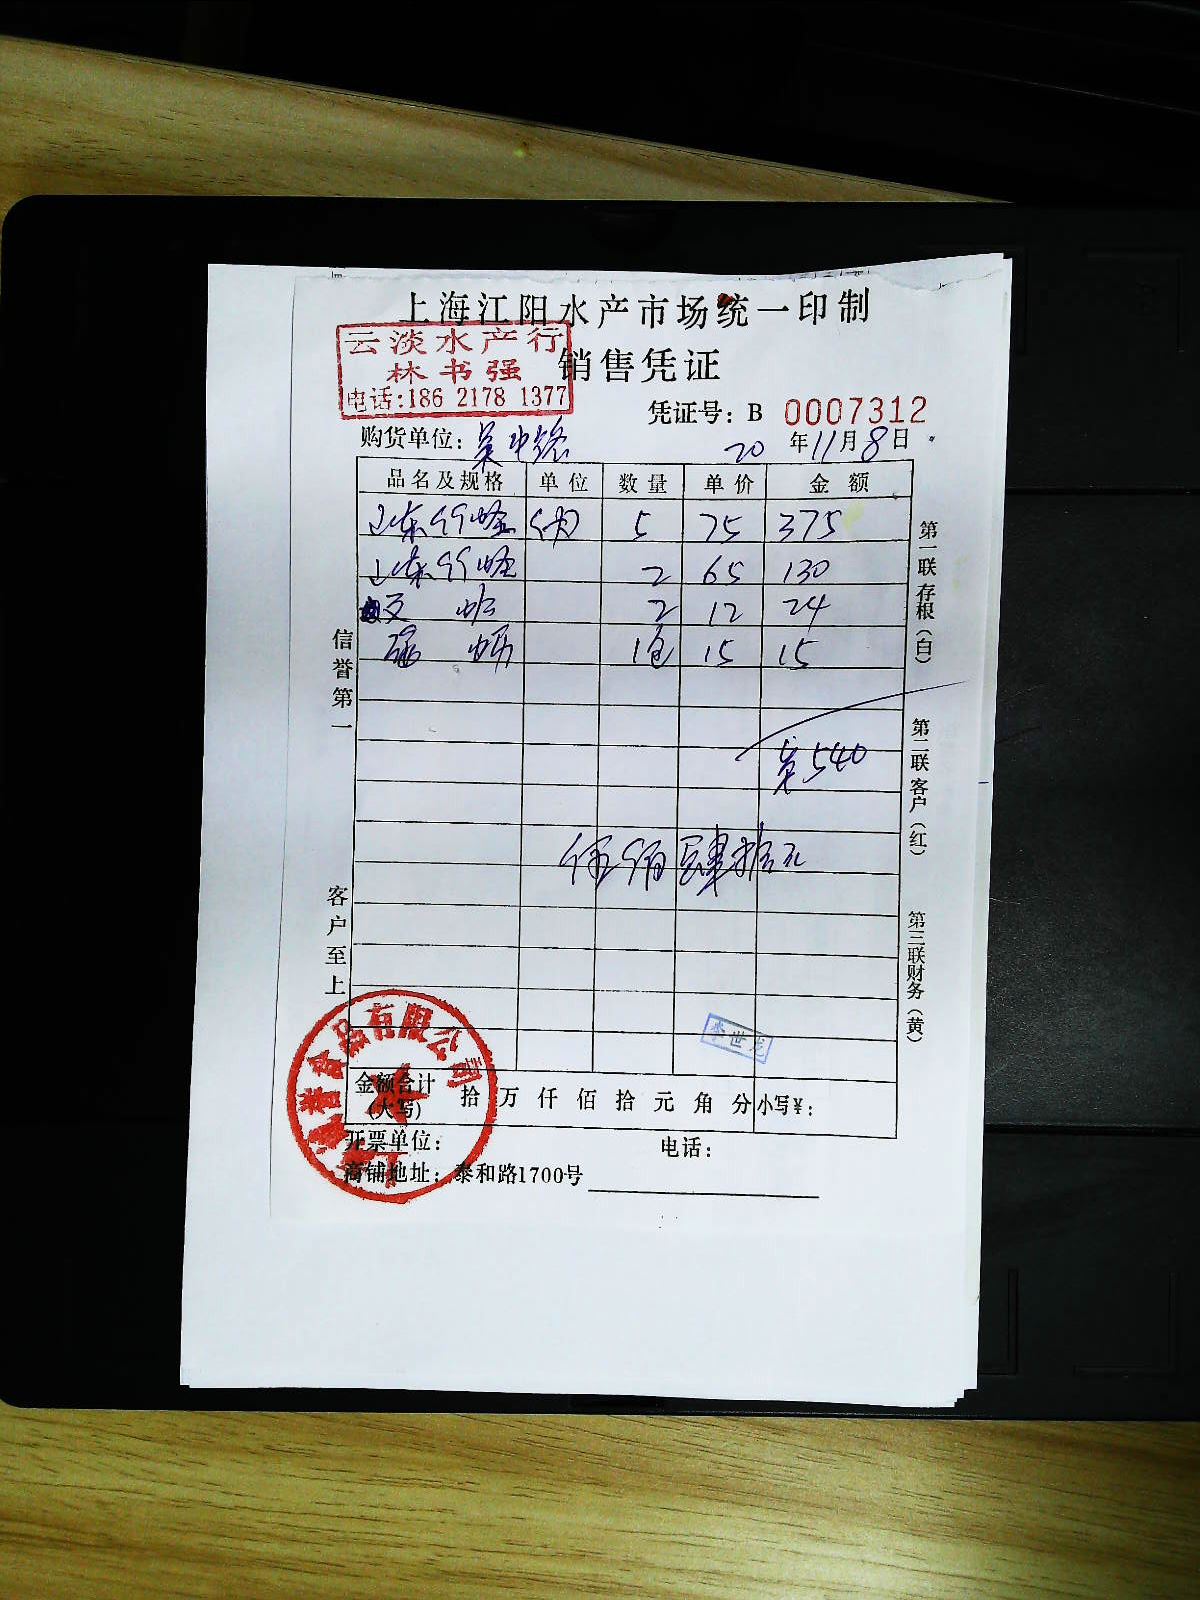 上海江阳水产市场统一印制
云淡水产行
林书强
电话:186 2178 1377
销售凭证
凭证号: B 0007312
购货单位: 吴中路
20 年11月8日
品名及规格 单位 数量 单价 金额
山东竹蛏 5 75 375
山东竹蛏 2 65 130
蚧 2 12 24
蛎 1包 15 15
540
伍佰肆拾元
信誉第一
客户至上
第一联存根(白)
第二联客户(红)
第三联财务(黄)
李世龙
誉食品有限公司
金额合计
(大写) 拾 万 仟 佰 拾 元 角 分 小写¥:
开票单位: 电话:
商铺地址: 泰和路1700号